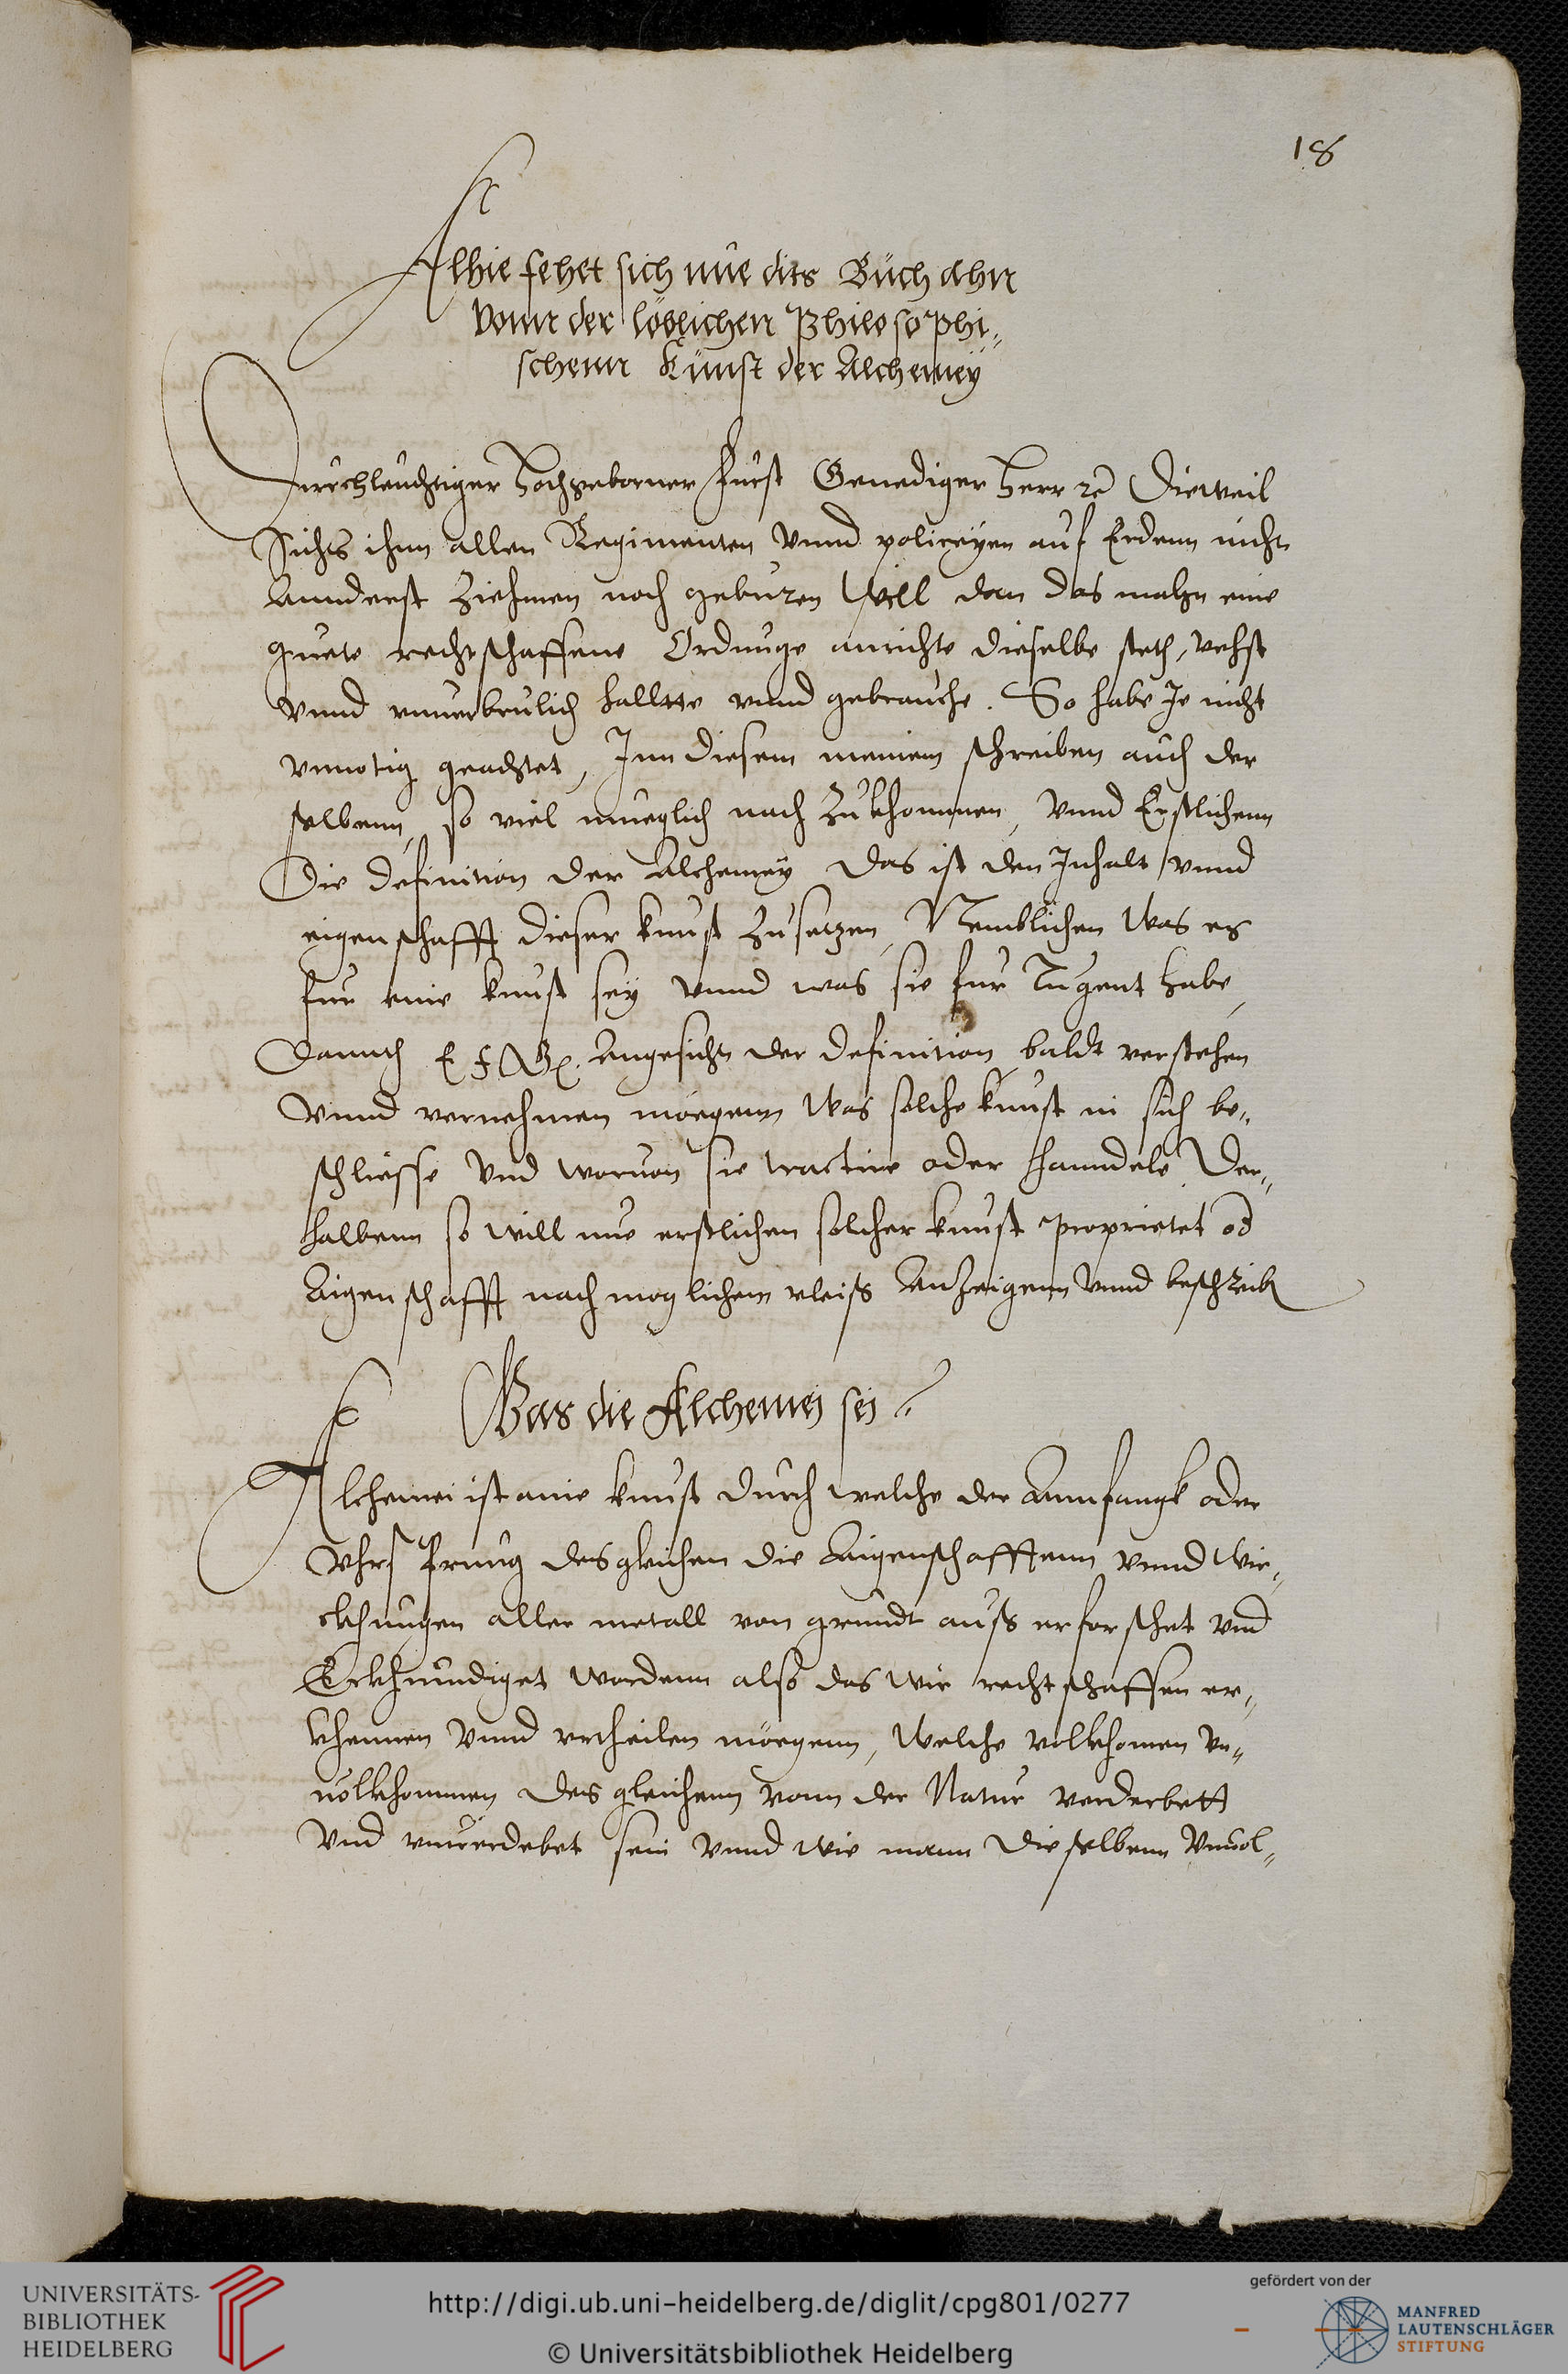 18
Alhie fehet sich nue dits Buch ahn
vonn der löblichen Philosophi„
schenn Kunst der Alchemey
Durrchleuchtiger Hochgeborner Furst Genediger Herr ꝛc Dieweil
Sichs ihnn allen Regimenten vnnd policeyen auf Erdenn nicht
Annderst Ziehmen noch geburen Will dan das mahn eine
guete rechtschaffene Ordnunge anrichte dieselbe steth, vehst
vnnd vnuerbrulich halltte vnnd gebrauche. So habe Je nicht
vnnotig geachtet, Inn diesem meinem schreiben auch der
selbenn, so viel mueglich nach Zu khommen, vnnd Erstlichenn
Die definition der Alchemey das ist den Inhalt vnnd
eigenschafft dieser kunst Zu setzen, Nemblichen Was es
fur eine kunst sey vnnd was sie fur Tugent habe,
Damith E F G. Angesicht der definition baldt verstehen
vnnd vernehmen möegenn Was solche kunst in sich be„
schliesse vnd woruon sie tractire oder hanndele Der„
halbenn so will nue erstlichen solcher kunst proprietet od
Aigenschafft nach moglichem vleiss Anzeigenn vnnd beschreib
Was die Alchemei sei ?
Alchemei ist eine kunst durch welche der Annfangk oder
Vhrsprung desgleichen die Aigenschafftenn vnnd Wir„
ckhungen aller metall von grundt auss erforschet vnd
Erkhundiget werdenn also das wir rechtschaffen er„
khennen vnnd vrtheilen möegenn, Welche volkhomen vn„
uolkhommen des gleichenn vonn der Natur verderbett
vnd vnuerderbet sein vnnd wie mann dieselbenn vnuol„
UNIVERSITÄTS-
BIBLIOTHEK
HEIDELBERG
http://digi.ub.uni-heidelberg.de/diglit/cpg801/0277
© Universitätsbibliothek Heidelberg
gefördert von der
MANFRED
LAUTENSCHLÄGER
STIFTUNG